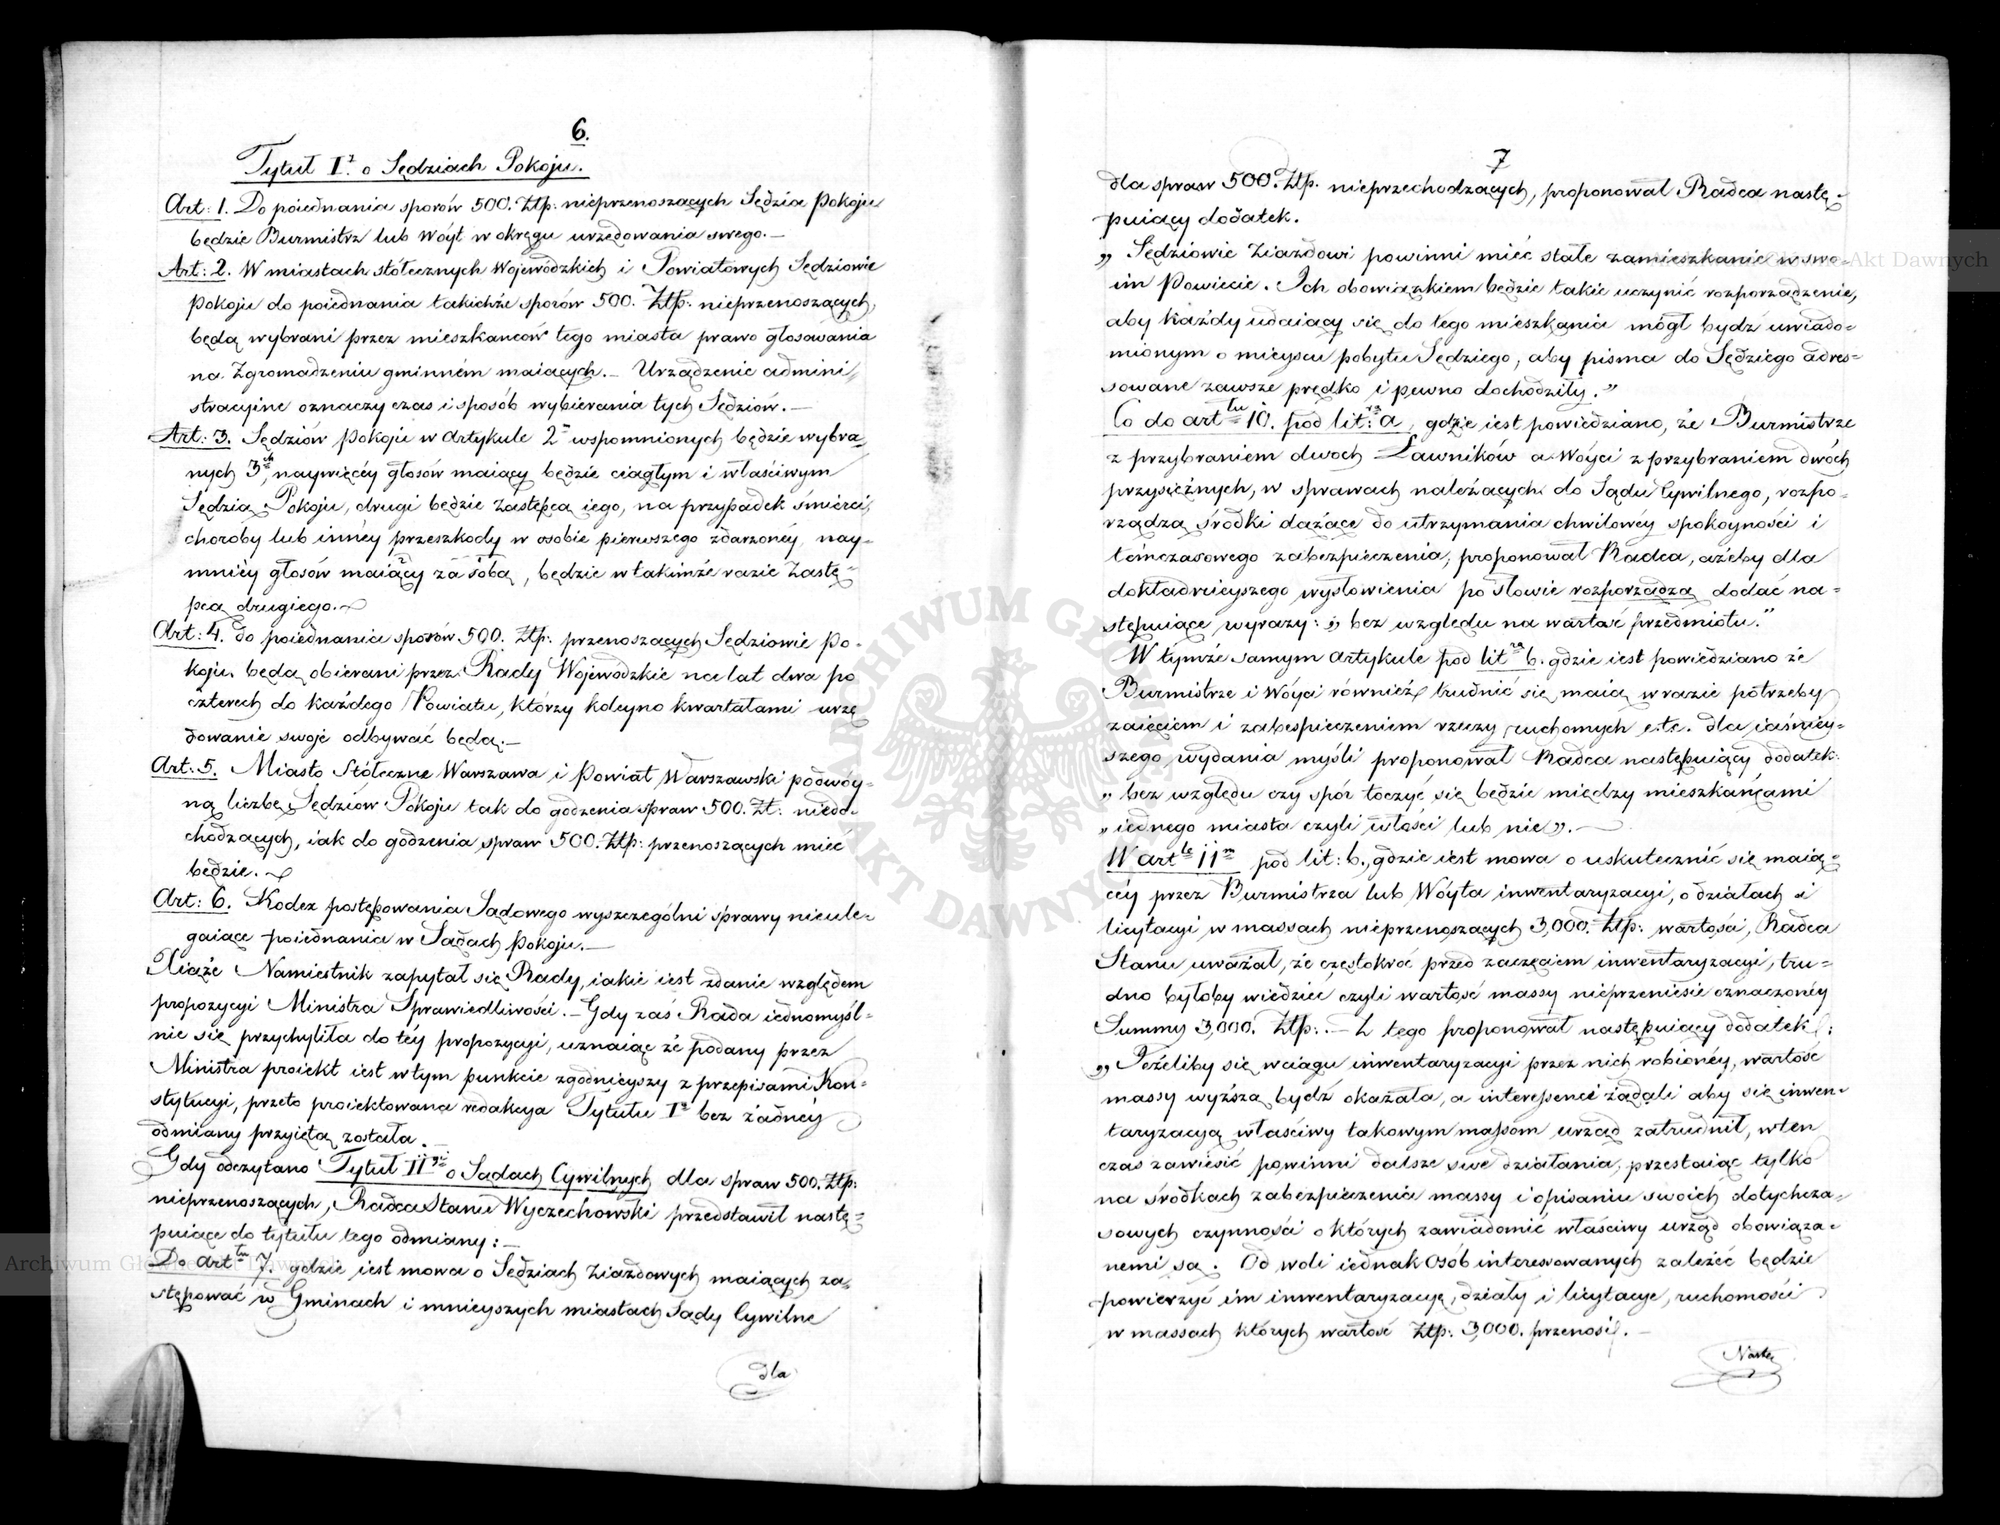 6.
Tytuł Iy. o Sędziach Pokoju.
Art: 1. Do poiednania sporów 500. Złp: nieprzenoszących Sędzia Pokoju
będzie Burmistrz lub Wóyt w okręgu urzędowania swego. —
Art: 2. W miastach stółecznych Wojewódzkich i Powiatowych Sędziowie
Pokoju do poiednania takichże sporów 500. Złp: nieprzenoszących,
będą wybrani przez mieszkańców tego miasta prawo głosowania
na Zgromadzeniu gminném maiących. — Urządzenie admini,,
stracyine oznaczy czas i sposób wybierania tych Sędziów. —
Art: 3. Sędziów Pokoju w Artykule 2m wspomnionych będzie wybra,,
nych 3ch, naywięcéy głosów maiący będzie ciągłym i właściwym
Sędzią Pokoju, drugi będzie Zastępcą iego, na przypadek śmierci,
choroby lub innéy przeszkody w osobie pierwszego zdarzonéy, nay-
mniéy głosów maiący za sobą, będzie w takimże razie Zastę-
pcą drugiego.
Art: 4. do poiednania sporów 500. Złp: przenoszących Sędziowie Po-
koju będą obierani przez Rady Wojewódzkie na lat dwa po
czterech do każdego Powiatu, którzy koleyno kwartałami urzę
dowanie swoje odbywać będą. —
Art: 5. Miasto Stółeczne Warszawa i Powiat Warszawski podwóy-
ną liczbę Sędziów Pokoju tak do godzenia spraw 500. Zł: niedo-
chodzących, iak do godzenia spraw 500. Złp: przenoszących mieć
będzie.
Art: 6. Kodex postępowania Sądowego wyszczególni sprawy nieule-
gaiące poiednania w Sądach Pokoju. —
Xiąże Namiestnik zapytał się Rady, iakie iest zdanie względem
propozycyi Ministra Sprawiedliwości. — Gdy zaś Rada iednomyśl-
nie się przychyliła do téy propozycyi, uznaiąc że podany przez
Ministra proiekt iest w tym punkcie zgodnieyszy z przepisami Kon-
stytucyi, przeto proiektowana redakcya Tytułu Io bez żadnéy
odmiany przyięta została. —
Gdy odczytano Tytuł IIgi o Sądach Cywilnych dla spraw 500. Złp:
nieprzenoszących, Radca Stanu Wyczechowski przedstawił nastę-
puiące do tytułu tego odmiany: —
Do Artłu 7. gdzie iest mowa o Sędziach Ziazdowych maiących za-
stępować w Gminach i mnieyszych miastach Sądy Cywilne
dla
7
dla spraw 500. Złp. nieprzechodzących, proponował Radca nastę-
puiący dodatek.
„ Sędziowie Ziazdowi powinni mieć stałe zamieszkanie w swo-
im Powiecie. Ich obowiązkiem będzie takie uczynić rozporządzenie,
aby każdy udaiący się do tego mieszkania mógł bydź uwiado-
mionym o mieyscu pobytu Sędziego, aby pisma do Sędziego adres-
sowane zawsze prędko i pewno dochodziły.”
Co do artłu 10. pod lit:ra a, gdzie iest powiedziano, że Burmistrze
z przybraniem dwoch Ławników a Wóyci z przybraniem dwóch
przysiężnych, w sprawach należących do Sądu Cywilnego, rozpo-
rządzą środki dążące do utrzymania chwilowéy spokoyności i
tómczasowego zabezpieczenia, proponował Radca, ażeby dla
dokładnieyszego wysłowienia po słowie rozporządzą dodać na-
stępuiące wyrazy: „ bez względu na wartość przedmiotu.”
W tymże samym Artykule pod litra b. gdzie iest powiedziano że
Burmistrze i Wóyci również trudnić się maią w razie potrzeby
zaięciem i zabespieczeniem rzeczy ruchomych etc. dla iaśniey-
szego wydania myśli proponował Radca następuiący dodatek:
„ bez względu czy spór toczyć się będzie między mieszkańcami
„ iednego miasta czyli włości lub nie”. —
W artle 11m pod lit: b., gdzie iest mowa o uskutecznić się maią-
céy przez Burmistrza lub Wóyta inwentaryzacyi, o działach i
licytacyi w massach nieprzenoszących 3,000. Złp: wartości, Radca
Stanu uważał, że częstokroć przed zaczęciem inwentaryzacyi, tru-
dno byłoby wiedzieć czyli wartość massy nieprzeniesie oznaczonéy
Summy 3,000. Złp: . — Z tego proponował następuiący dodatek:
„ Jeżeliby się w ciągu inwentaryzacyi przez nich robionéy, wartość
massy wyższą bydź okazała, a interessenci żądali aby się inwen-
taryzacyą właściwy takowym massom urząd zatrudnił, w ten
czas zawiesić powinni dalsze swe działania, przestaiąc tylko
na środkach zabezpieczenia massy i opisaniu swoich dotychcza-
sowych czynności o których zawiadomić właściwy urząd obowiąza-
nemi są. Od woli iednak osób interesowanych zależeć będzie
powierzyć im inwentaryzacyę, działy i licytacye, ruchomości
w massach których wartość Złp: 3,000. przenosi. —
Nastę